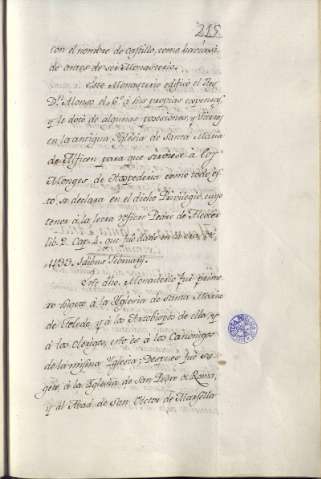 215
con el nombre de Castillo, como lo havia si
do antes de ser Monasterio.
Este Monasterio edificó el Rey
Dn. Alonso el 6º á sus propias expensas,
y le dotó de algunas posesiones y tierras
en la antigua Iglesia de Santa Maria
de Alficen para que sirviese á los
Monges de Hospederia como todo es
to se declara en el dicho Privilegio, cuyo
tenor á la letra refiere Pedro de Alcocer
lib. 2. Cap. 4. que fué dado en la
Idibus Februarij.
Este dho. Monasterio fué prime
ro sugeto á la Iglesia de Santa Maria
de Toledo, y á los Arzobispos de ella, y
á los Clerigos, esto es á los Canonigos
de la misma Iglesia; Despues fué su
geto á la Iglesia de San Pedro de Roma,
y al Abad de San Victor de Marsella